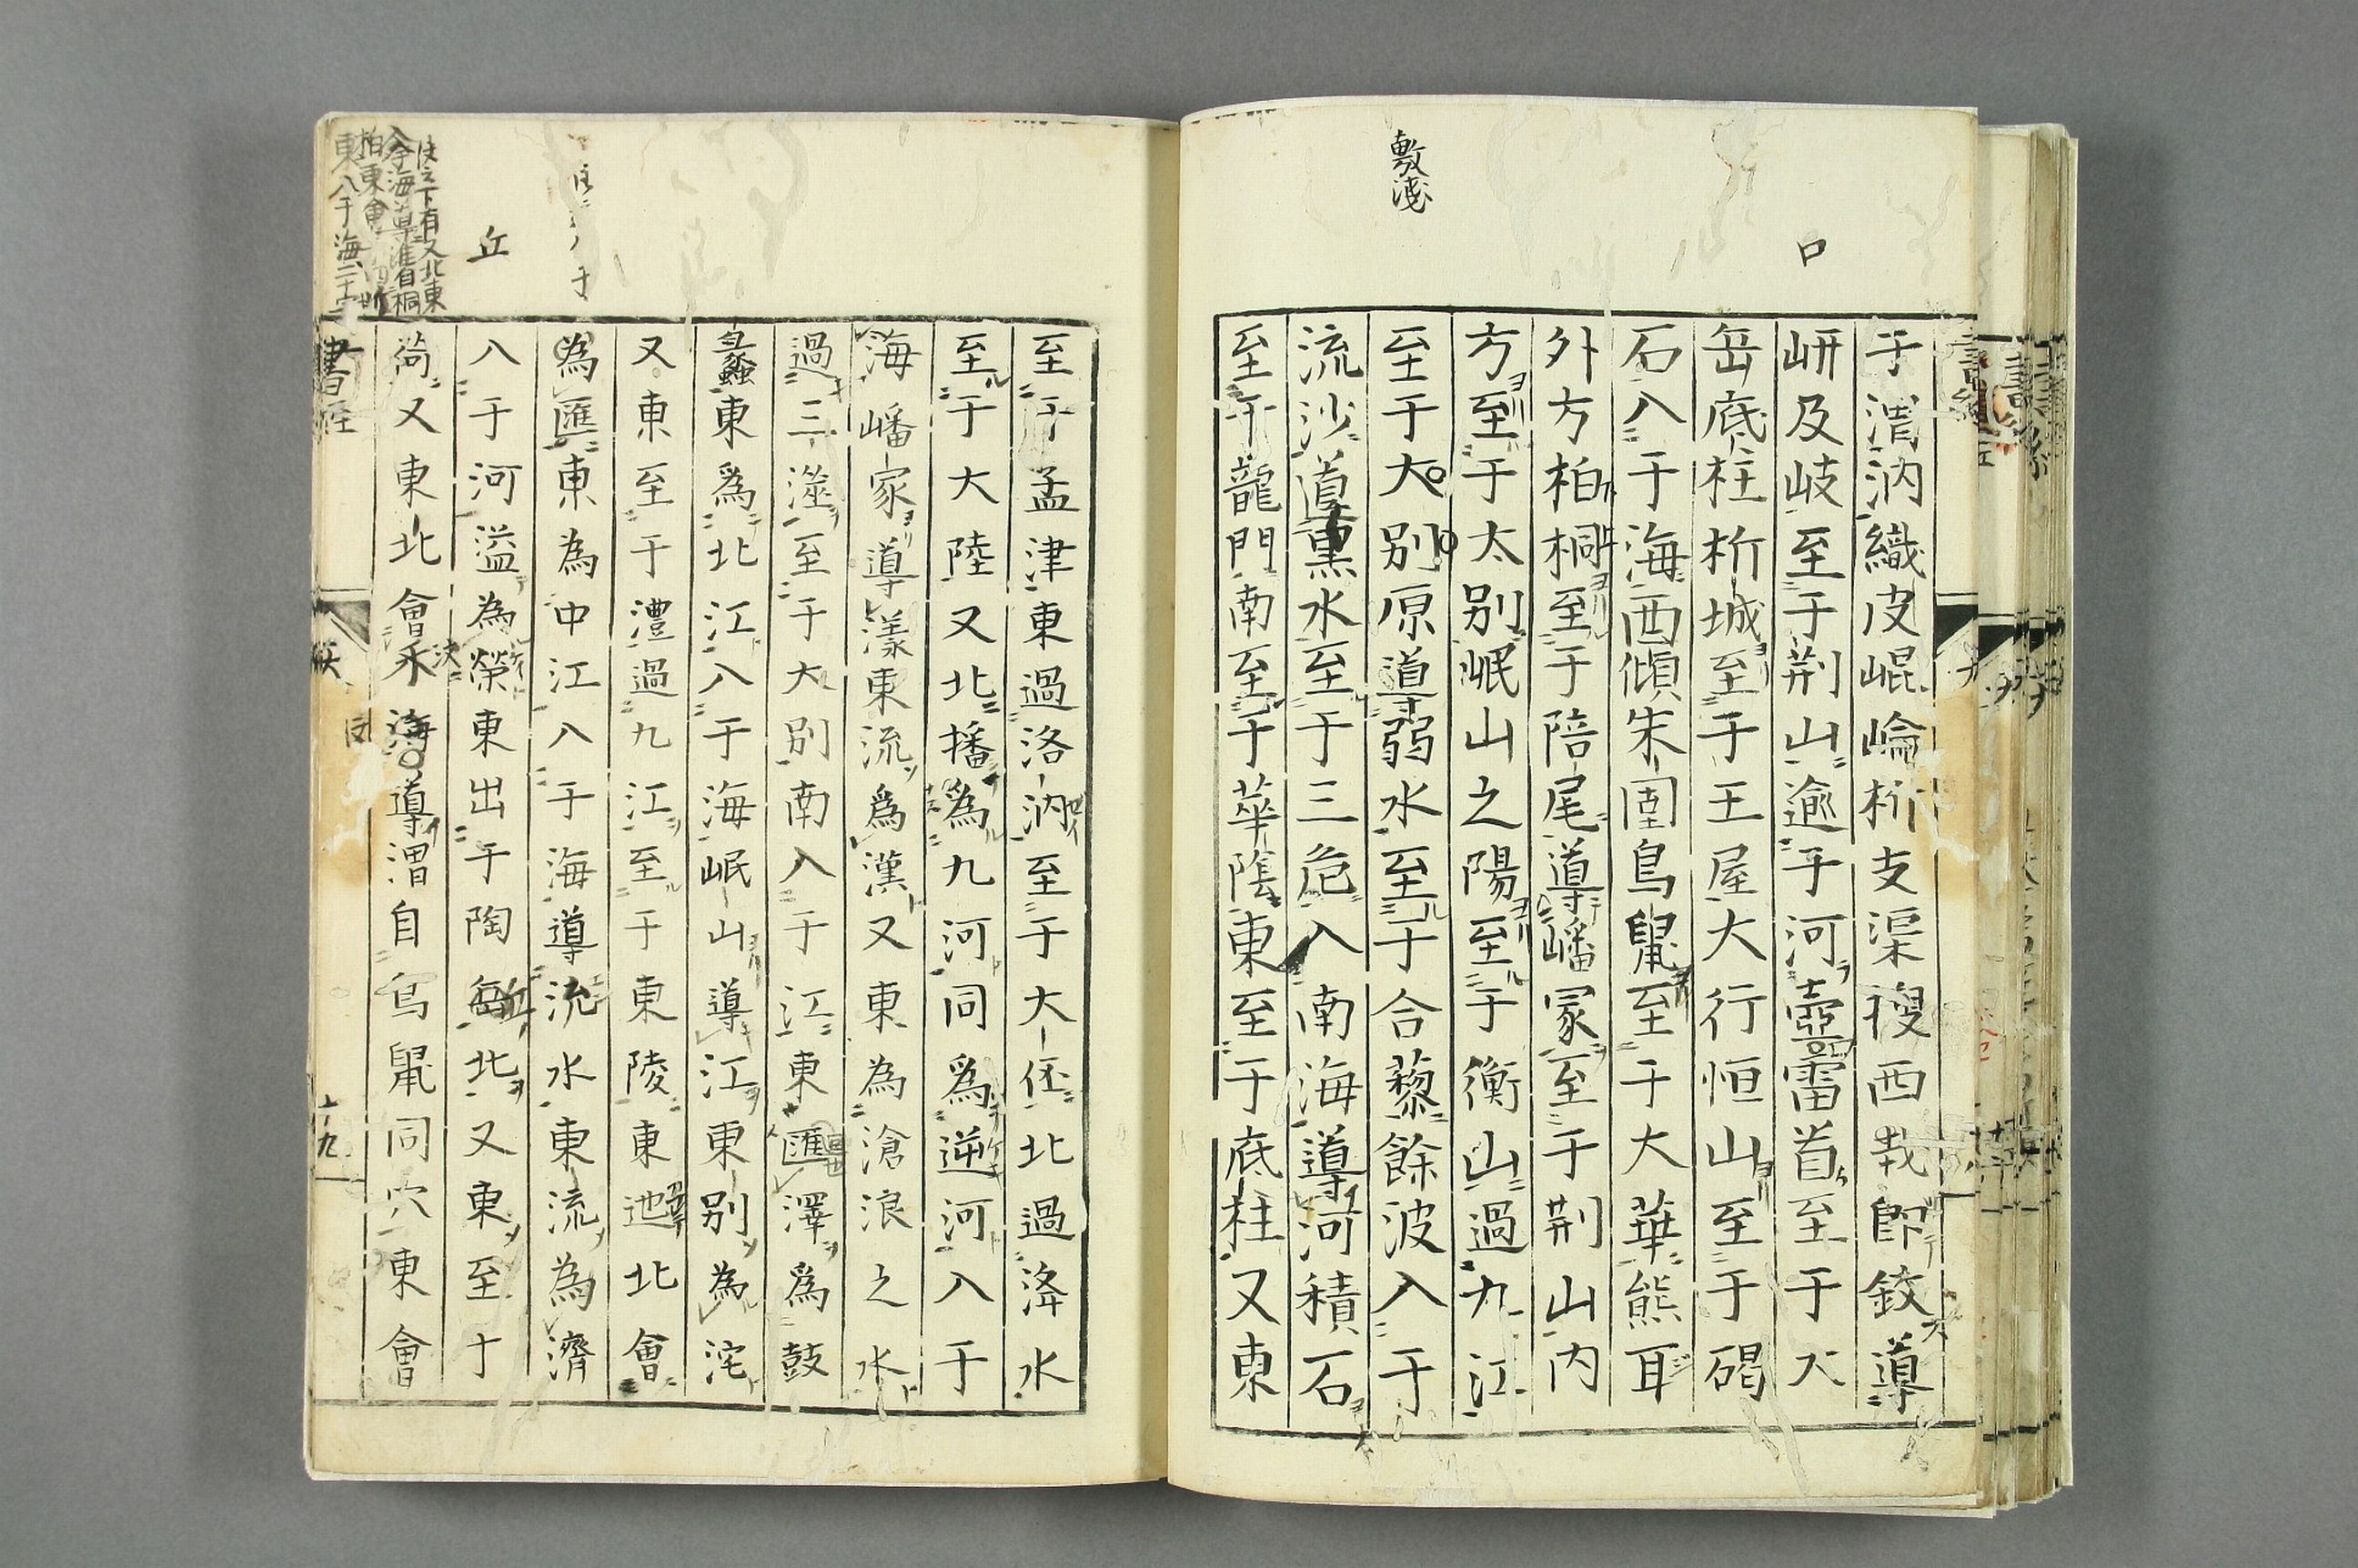 敷淺
口
于渭汭織皮崐崘析支渠搜西哉卽敍導
岍及岐至于荆山逾于河壷口雷首至于大
岳底柱析城至于王屋大行恒山至于碣
石入于海西傾朱圉鳥鼠至于大華熊耳
外方柏桐至于陪尾導嶓冢至于荆山内
方至于太别岷山之陽至于衡山過九江
至于大別原導弱水至于合藜餘波入于
流沙導黒水至于三危入南海導河積石
至于龍門南至于華陰東至于底柱又東
至于孟津東過洛汭至于大伾北過洚水
至于大陸又北播為九河同爲逆河入于
海嶓冢導漾東流爲漢又東為滄浪之水
過三澨至于大別南入于江東匯澤爲鼓
蠡東爲北江入于海岷山導江東別為沱
又東至于澧過九江至于東陵東迆北會
為匯東為中江入于海導沇水東流為濟
入于河溢為榮東出于陶丘北又東至于
荷又東北會汶海導渭自鳥鼠同穴東會
丘
下有又北東
入海導淮自桐
柏東會
東入于海二十字
書経
十九